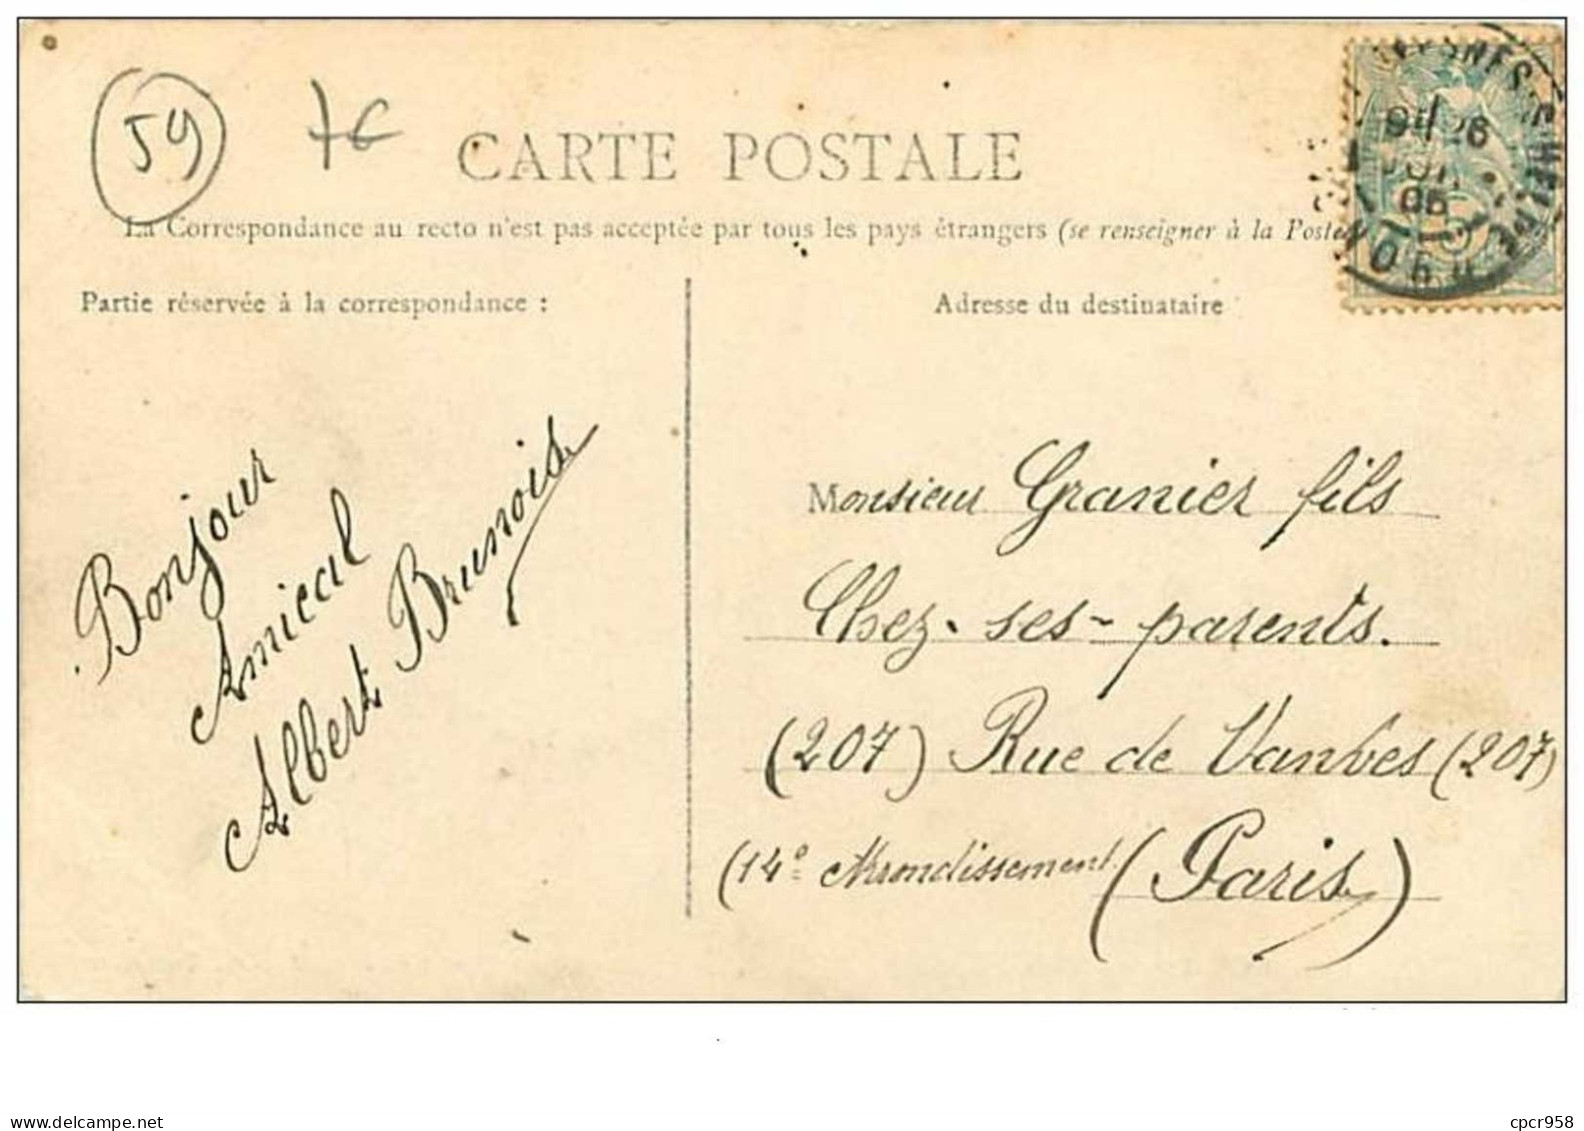 59
7€
CARTE POSTALE
La Correspondance au recto n'est pas acceptée par tous les pays étrangers (se renseigner à la Poste)
Partie réservée à la correspondance :
Adresse du destinataire
Bonjour
Amical
Albert Brunois
Monsieur Granier fils
Chez-ses-parents.
(207) Rue de Vanves (207)
(14e Arrondissement (Paris)
delcampe.net
cpcr958